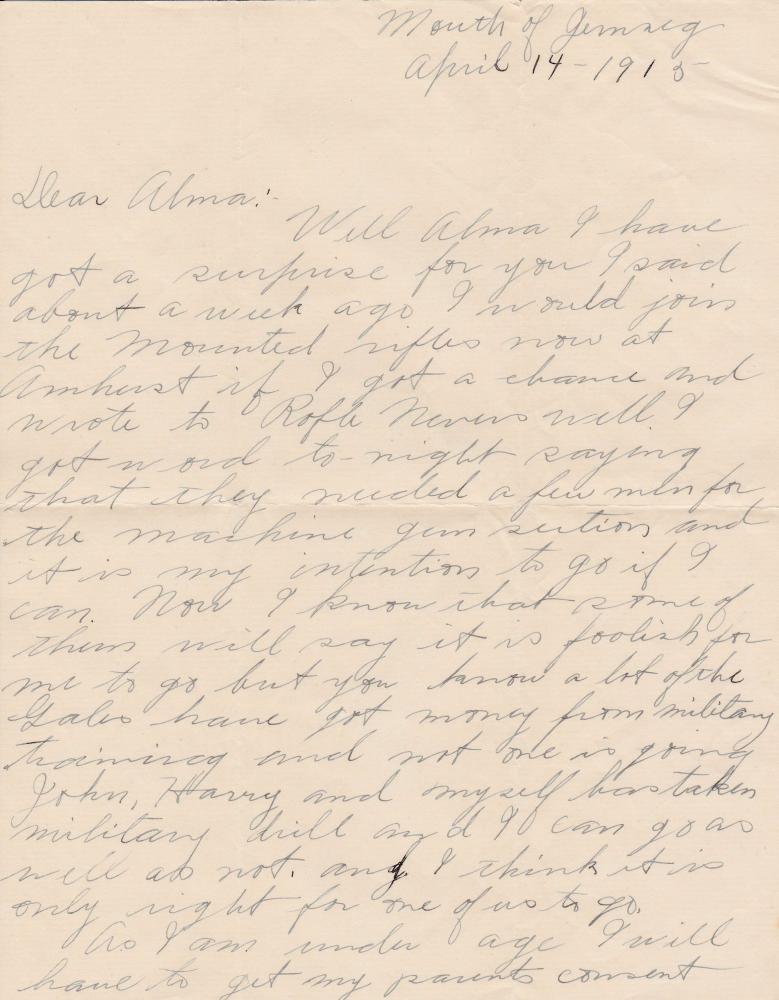 Mouth of Jemseg
April 14-1915
Dear Alma:-
Well Alma I have
got a surprise for you I said
about a week ago I would join
the Mounted rifles now at
Amherst if I got a chance and
wrote to Nevers well I
got word to-night saying
that they needed a few men for
the machine gun section and
it is my intention to go if I
can. Now I know that some of
them will say it is foolish for
me to go but you know a lot of the
Gales have got money from military
training and not one is going
John, Harry and myself has taken
military drill and I can go as
well as not. and I think it is
only right for one of us to go.
As I am under age I will
have to get my parents consent